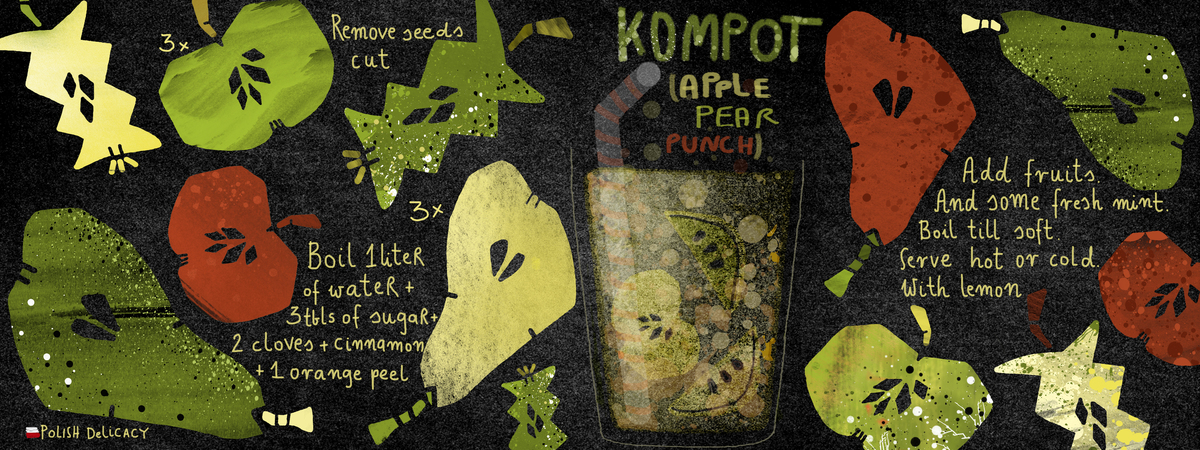 3x
Remove seeds
cut
3x
Boil 1liteR
of wateR +
3tbls of sugaR+
2 cloves + cinnamon
+ 1 orange peel
POLISH DeLiCACY
KOMPOT
(APPLE
PEAR
PUNCH)
Add fruits.
And some fresh mint.
Boil till soft.
Serve hot or cold.
With lemon